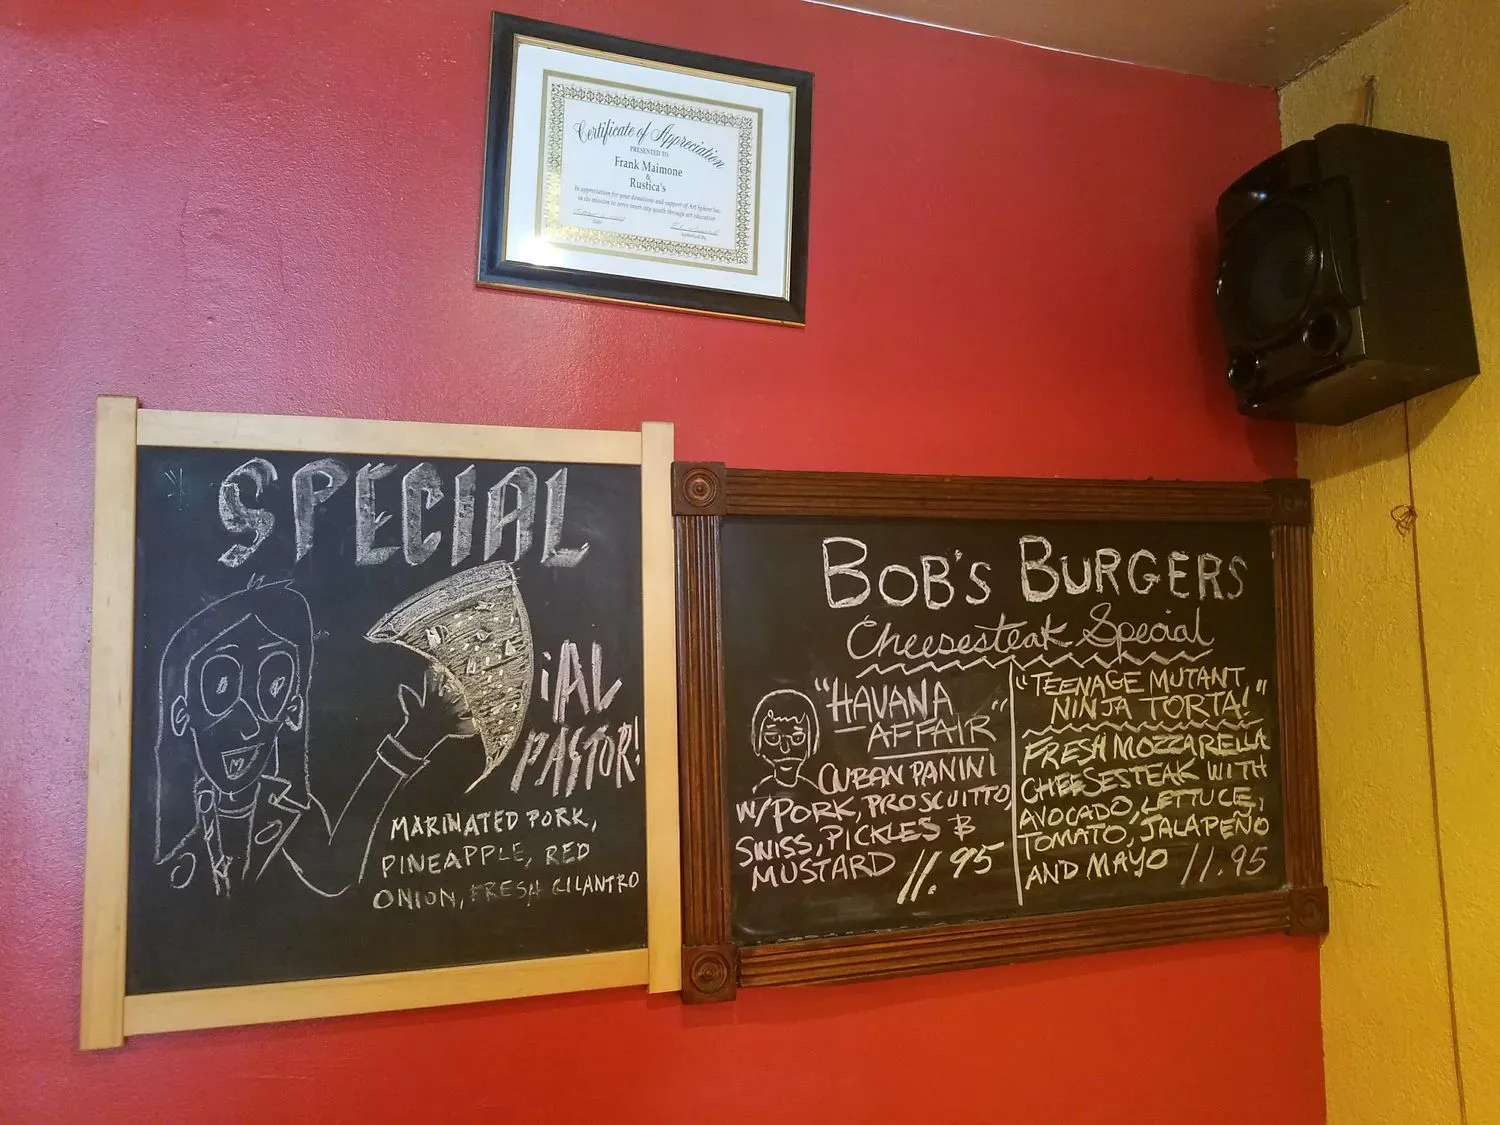 Certificate of Appreciation
PRESENTED TO
Frank Maimone
&
Rustica's
In appreciation for your donations and support of Art Sphere Inc.
in its mission to serve inner city youth through art education
Date
Authorized By
SPECIAL
¡AL
PASTOR!
MARINATED PORK,
PINEAPPLE, RED
ONION, FRESH CILANTRO
BOB'S BURGERS
Cheesesteak Special
"HAVANA
AFFAIR"
CUBAN PANINI
W/PORK, PROSCUITTO,
SWISS, PICKLES &
MUSTARD 11.95
"TEENAGE MUTANT
NINJA TORTA!"
FRESH MOZZARELLA
CHEESESTEAK WITH
AVOCADO, LETTUCE,
TOMATO, JALAPEÑO
AND MAYO 11.95